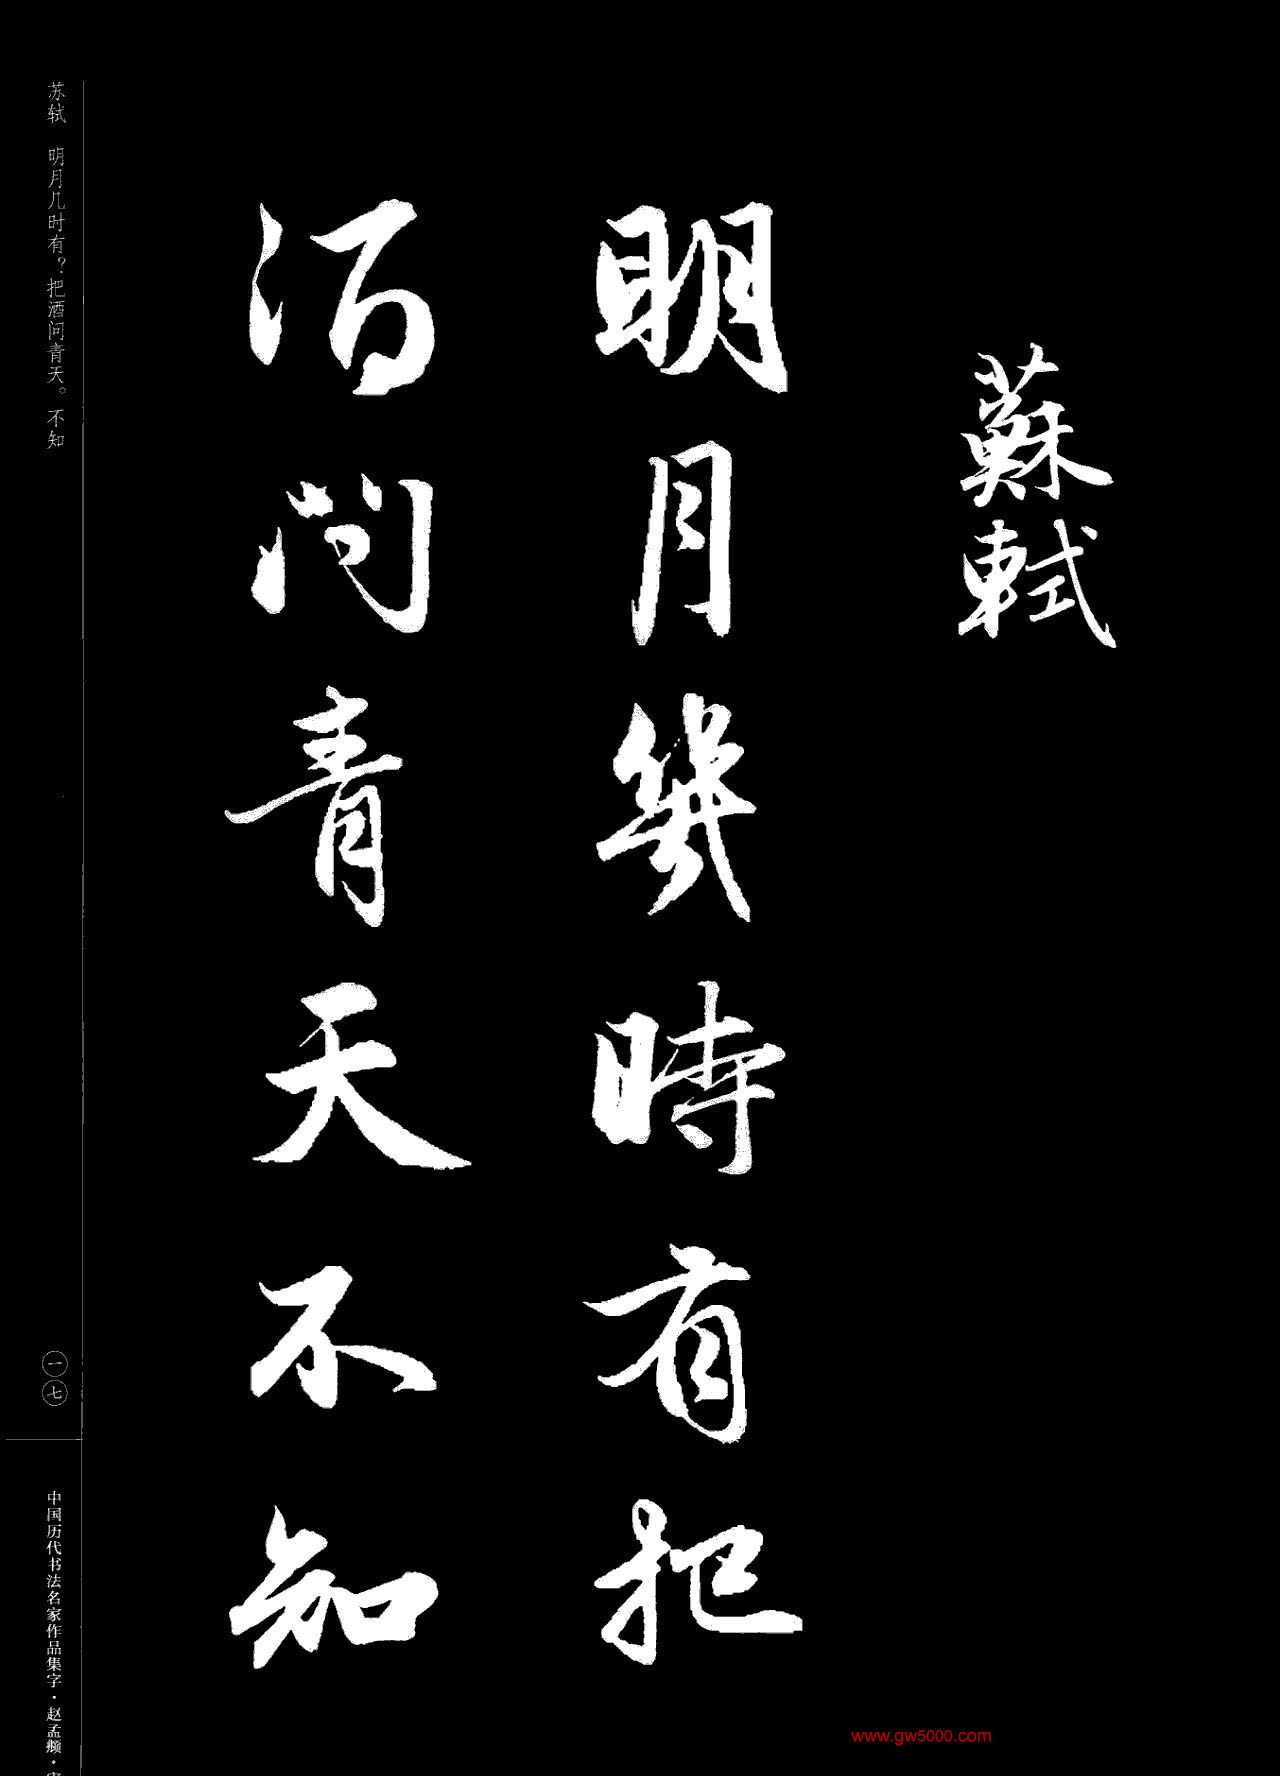 蘇軾
明月幾時有把
酒問青天不知
苏轼 明月几时有？把酒问青天。不知
一七
中国历代书法名家作品集字·赵孟頫·
www.gw5000.com